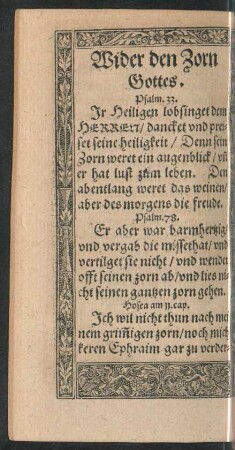 Wider den Zorn
Gottes.
Psalm. 33.
Ir Heiligen lobsinget dem
HERREN/ dancket vnd prei-
set seine heiligkeit / Denn sein
Zorn weret ein augenblick/ vñ
er hat lust zum leben. Den
abentlang weret das weinen/
aber des morgens die freude.
Psalm. 78.
Er aber war barmhertzig/
vnd vergab die missethat/ vnd
vertilget sie nicht / vnd wendet
offt seinen zorn ab/vnd lies ni-
cht seinen gantzen zorn gehen.
Hosea am 11. cap.
Ich wil nicht thun nach mei
nem grim̃igen zorn/ noch mich
keren Ephraim gar zu verder-